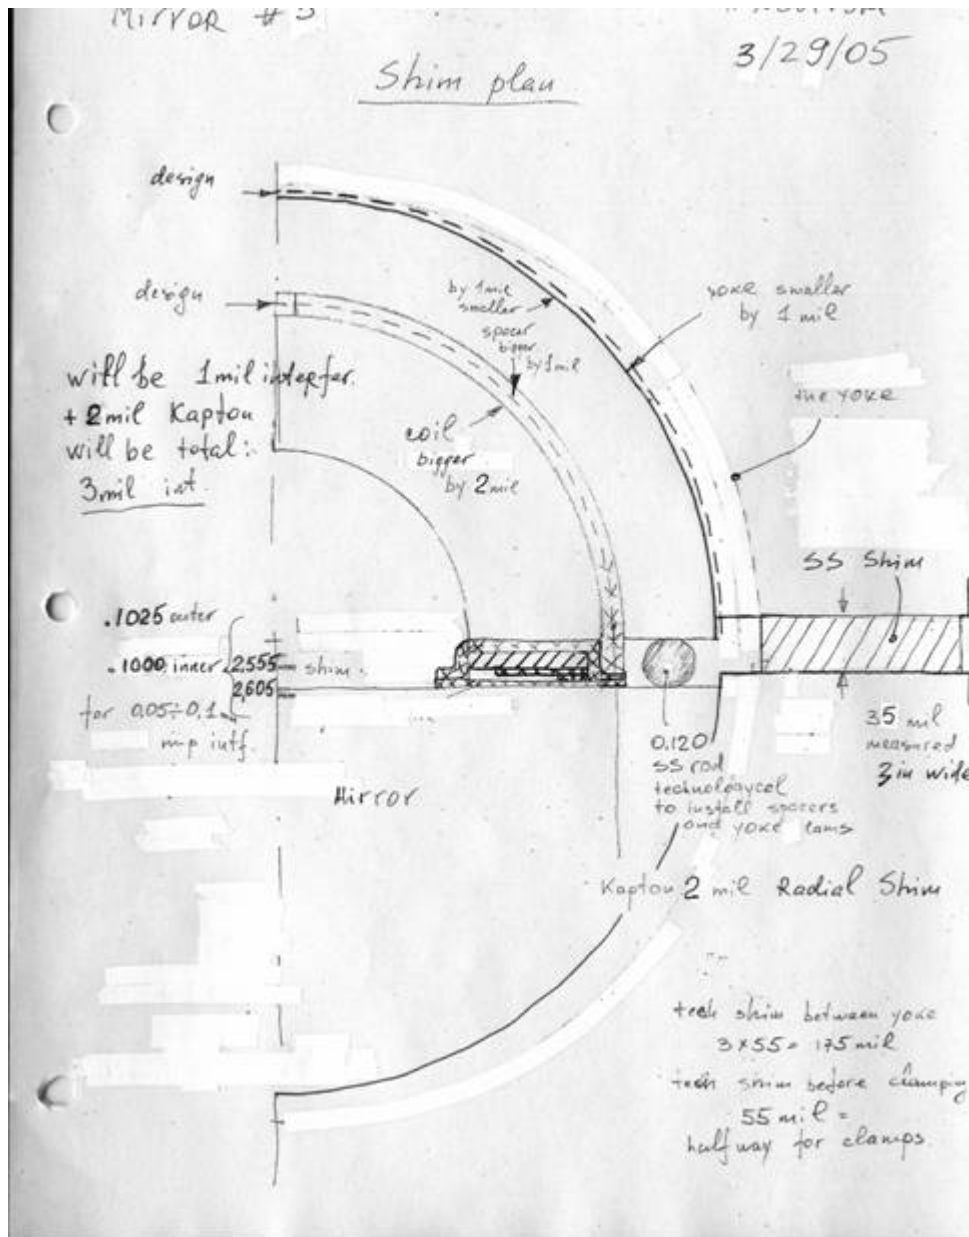 Mirror #3
3/29/05
Shim plan
design
design
by 1 mil
smaller
spacer
bigger
by 1 mil
yoke smaller
by 1 mil
the yoke
will be 1mil interfer.
+ 2mil Kapton
will be total:
3mil int.
coil
bigger
by 2mil
SS Shim
.1025 outer
.1000 inner
.2555
shim.
.2605
for 0.05÷0.1
intf.
Mirror
0.120
SS rod
technologycal
to install spacers
and yoke lams
35 mil
measured
3in wide
Kapton 2 mil Radial Shim
tech shim between yoke
3×55= 175mil
tech shim before clamping
55 mil =
half way for clamps.